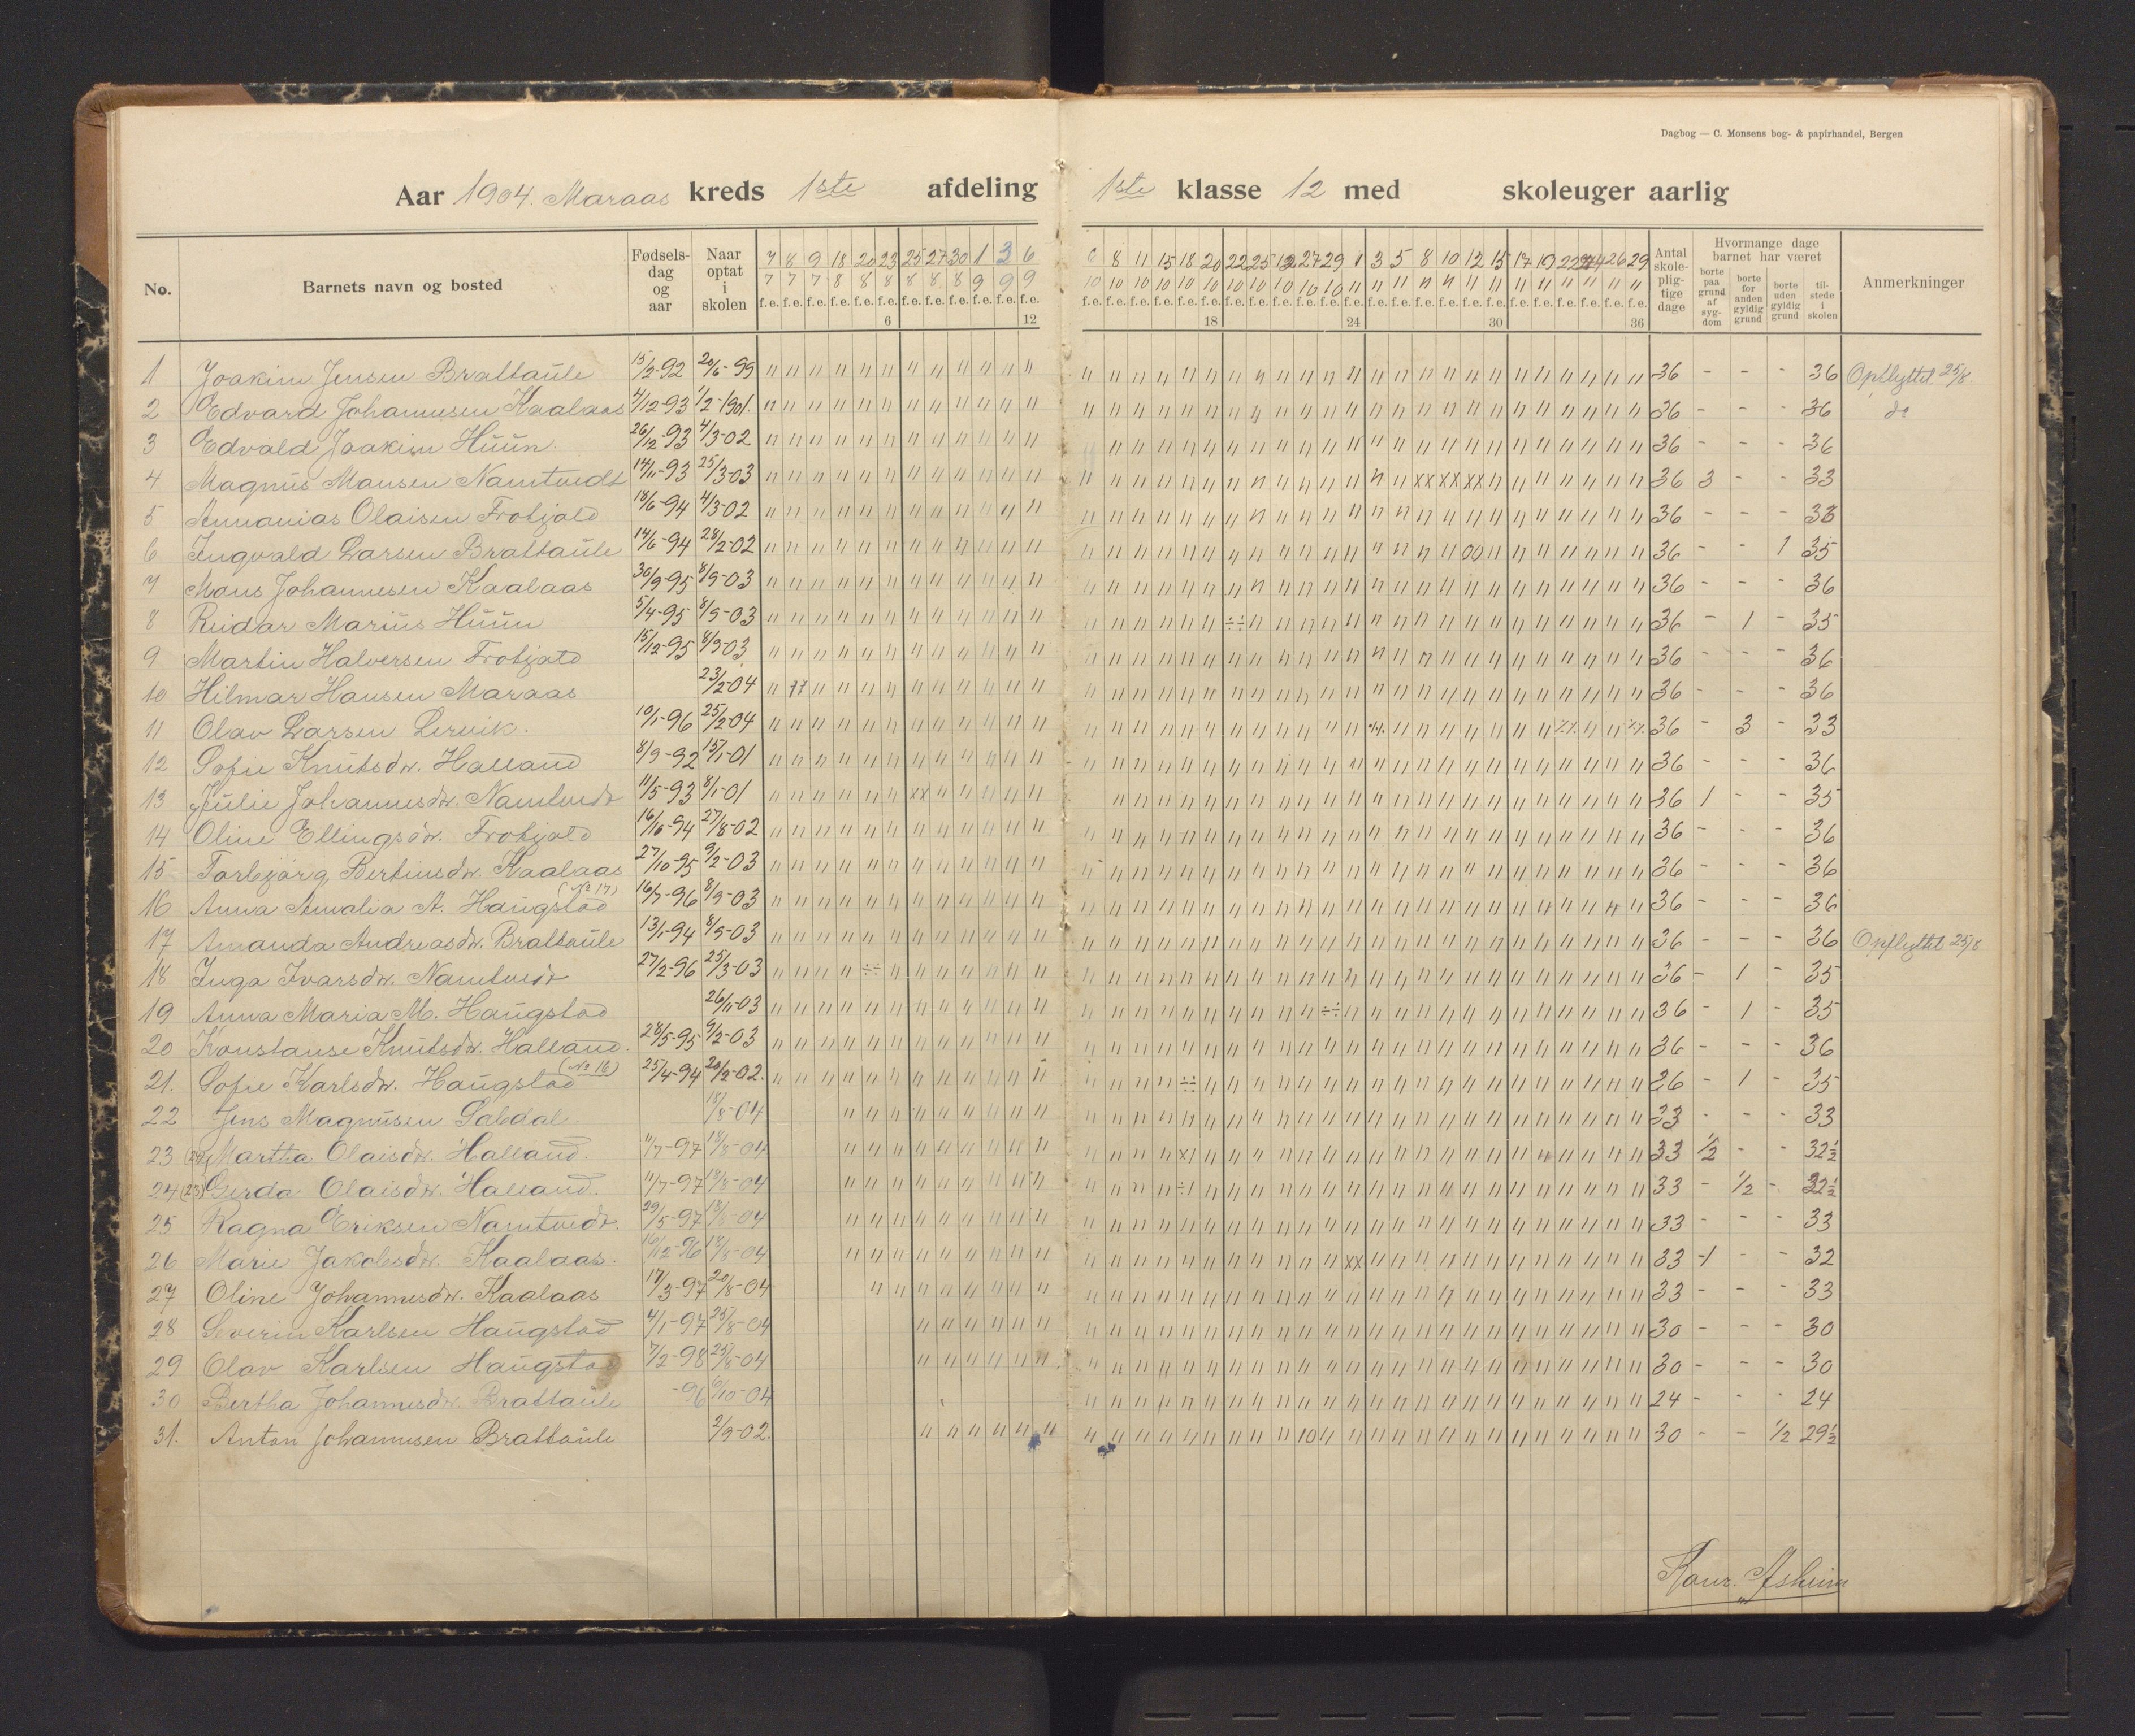 Dagbog — C. Monsens bog- & papirhandel, Bergen
Aar 1904. Maraas kreds 1ste afdeling 1ste klasse 12 med skoleuger aarlig
No. Barnets navn og bosted Fødsels-dag og aar Naar optat i skolen Antal skole-plig-tige dage Hvormange dage barnet har været Anmerkninger
borte paa grund af syg-dom borte for anden gyldig grund borte uden gyldig grund til-stede i skolen
7 8 9 18 20 23 25 27 30 1 3 6 6 8 11 15 18 20 22 25 27 29 1 3 5 8 10 12 15 17 19 22 24 26 29
7 7 7 8 8 8 8 8 8 9 9 9 10 10 10 10 10 10 10 10 10 10 10 11 11 11 11 11 11 11 11 11 11 11 11 11
f.e. f.e. f.e. f.e. f.e. f.e. f.e. f.e. f.e. f.e. f.e. f.e. f.e. f.e. f.e. f.e. f.e. f.e. f.e. f.e. f.e. f.e. f.e. f.e. f.e. f.e. f.e. f.e. f.e. f.e. f.e. f.e. f.e. f.e. f.e. f.e.
6 12 18 24 30 36
1 Joakim Jensen Brattaule 15/2-92 20/6-99 36 - - - 36 Opflyttet 25/8
2 Edvard Johannesen Kaalaas 4/12-93 1/2-1901. 36 - - - 36 do
3 Edvald Joakim Huun. 26/12-93 4/3-02 36 - - - 36
4 Magnus Mansen Namtvedt 14/11-93 25/3-03 xx xx xx 36 3 - - 33
5 Annanias Olaisen Frotjold 18/6-94 4/3-02 36 - - - 36
6 Ingvald Larsen Brattaule 14/6-94 28/2-02 00 36 - - 1 35
7 Mons Johannesen Kaalaas 30/9-95 8/9-03 36 - - - 36
8 Reidar Marius Huun 5/4-95 8/9-03 ÷÷ 36 - 1 - 35
9 Martin Halversen Frotjold 15/12-95 8/9-03 36 - - - 36
10 Hilmar Hansen Maraas 23/2-04 36 - - - 36
11 Olav Larsen Lervik. 10/1-96 25/2-04 36 - 3 - 33
12 Sofie Knutsdr. Halland 8/9-92 15/1-01 36 - - - 36
13 Julie Johannesdr. Namtvedt 11/5-93 8/1-01 xx 36 1 - - 35
14 Oline Ellingsdr. Frotjold 16/10-94 27/8-02 36 - - - 36
15 Torbjørg Bertinsdr. Kaalaas 27/10-95 9/2-03 36 - - - 36
16 Anna Amalia A. Haugstad (No 17) 16/7-96 8/9-03 36 - - - 36
17 Amanda Andreasdr. Brattaule 13/1-94 8/9-03 36 - - - 36 Opflyttet 25/8
18 Inga Ivarsdr. Namtvedt 27/2-96 25/3-03 ÷÷ 36 - 1 - 35
19 Anna Maria M. Haugstad 26/11-03 ÷÷ 36 - 1 - 35
20 Konstanse Knutsdr. Halland. 28/5-95 9/2-03 36 - - - 36
21. Sofie Karlsdr. Haugstad (No 16) 25/4-94 20/2-02. ÷÷ 26 - 1 - 35
22 Jens Magnusen Sabdal. 18/8-04 33 - - - 33
23 (24) Martha Olaisdr. Halland. 11/7-97 18/8-04 33 1/2 - - 32½
24 (23) Gerda Olaisdr. Halland. 11/7-97 18/8-04 33 - 1/2 - 32½
25 Ragna Eriksen Namtvedt. 29/5-97 18/8-04 33 - - - 33
26 Marie Jakobsdr. Kaalaas. 16/12-96 18/8-04 xx 33 -1 - - 32
27 Oline Johannesdr. Kaalaas 17/3-97 20/8-04 33 - - - 33
28 Severin Karlsen Haugstad 4/1-97 25/8-04 30 - - - 30
29 Olav Karlsen Haugstad 7/2-98 25/8-04 30 - - - 30
30 Bertha Johannesdr. Brattaule -96 6/10-04 24 - - - 24
31. Anton Johannesen Brattaule 2/9-02. 30 - - 1/2 29½
Konr. Asheim